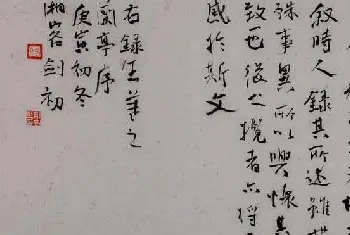 叙時人錄其所述雖
殊事異所以興懷其
致也後之攬者亦将
感於斯文
右錄王羲之
蘭亭序
庚寅初冬
湘客剑初